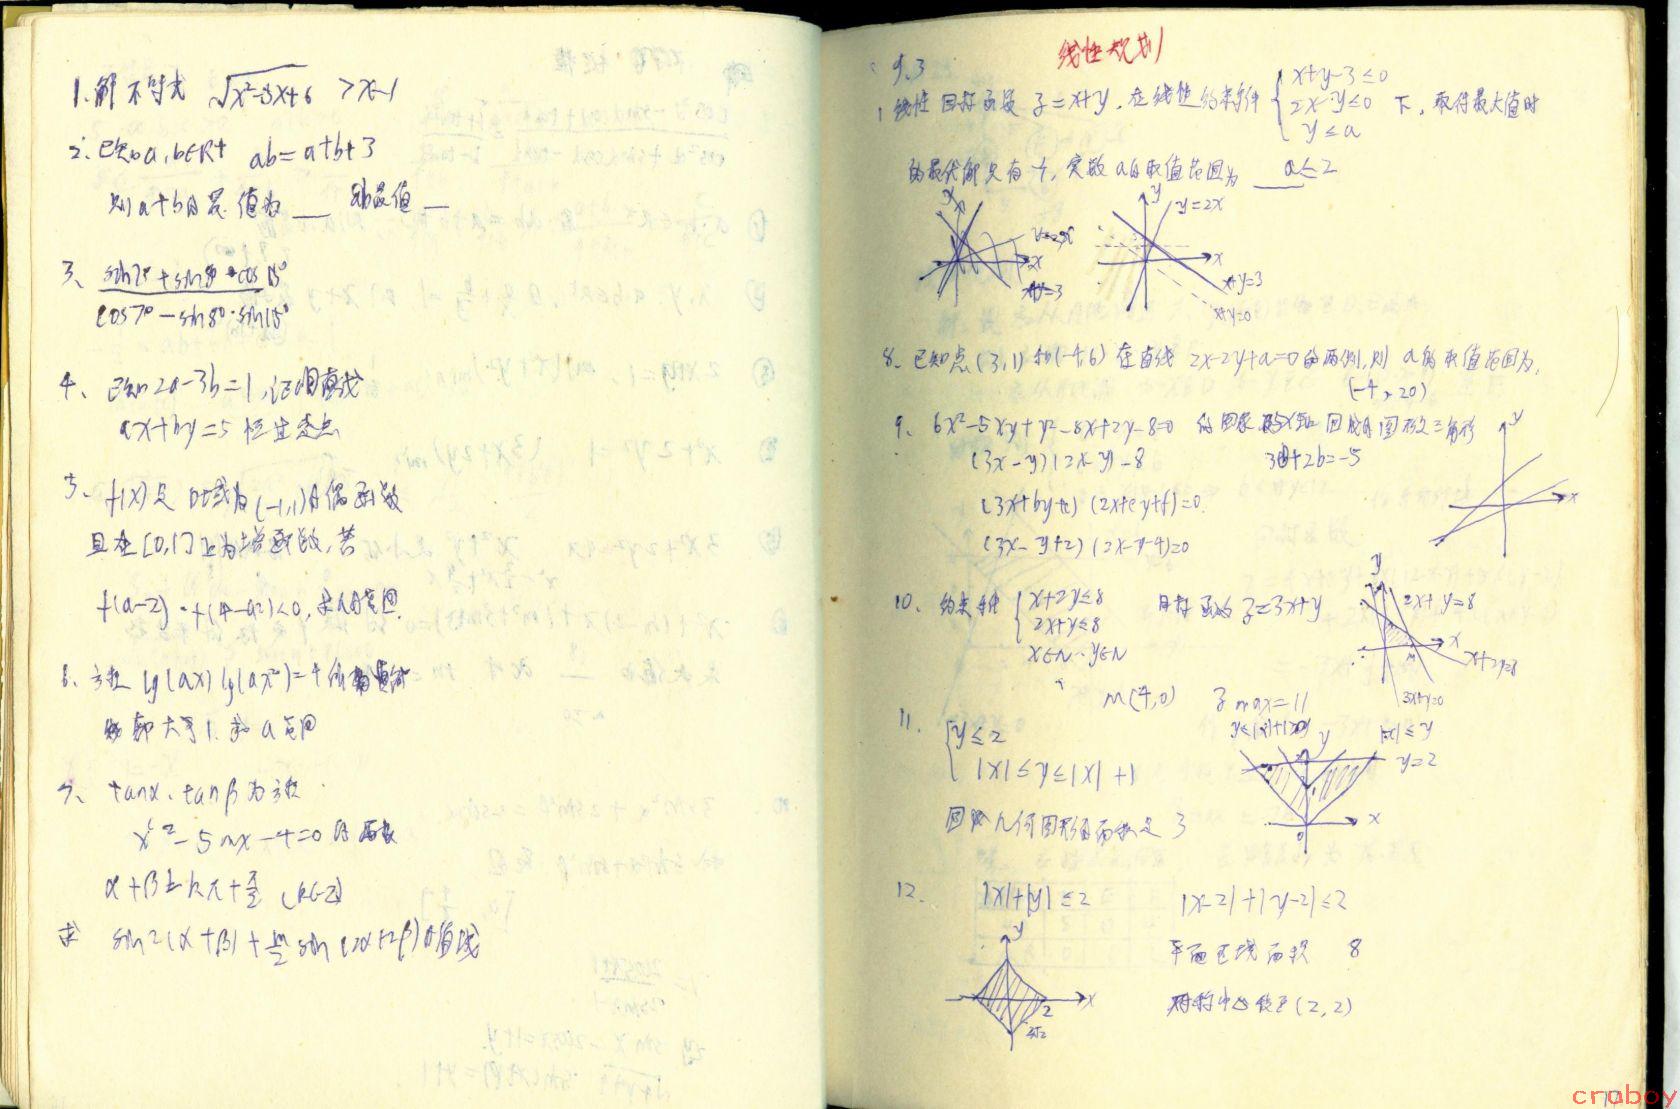 1. 解不等式 √x²-3x+6 > x-1
2. 已知a,b∈R+ ab=a+b+3
则a+b的最 值为 __ ab最值 __
3、 sin7°+sin8°·cos15°
cos7°-sin8°·sin15°
4、 已知2a-3b=1,证明直线
ax+by=5 恒过定点
5、 f(x)是 D域为(-1,1)的偶函数
且在[0,1)上为增函数,若
f(a-2)-f(4-a²)<0, 求a的范围
6、 方程 lg(ax)lg(ax²)=4 所有
都大于1. 求a范围
7、 tanα、tanβ为方程
x²-5mx-4=0的两根
α+β≠kπ+π/2 (k∈Z)
求 sin2(α+β)+ sin(2α+2β)的值域
线性规划
9.3
1 线性目标函数 z=x+y, 在线性约束条件 { x+y-3≤0
2x-y≤0 下, 取得最大值时
y≤a
的最优解只有一个, 实数a的取值范围为 __ a≤2
y
y=2x
x
x+y=3
y
y=2x
x
x+y=3
x+y=0
8、 已知点(3,1)和(-4,6)在直线 2x-2y+a=0的两侧,则 a的取值范围为,
(-4,20)
9、 6x²-5xy+y²-8x+2y-8=0 的图象 与x轴 围成的图形为三角形
(3x-y)(2x-y)-8
3e+2b=-5
(3x+by+c)(2x+ey+f)=0
(3x-y+2)(2x-y-4)=0
y
x
10、 约束条件 { x+2y≤8 目标函数 z=3x+y
2x+y≤8
x∈N y∈N
M(4,0) zmax=11
y
2x+y=8
x
x+2y=8
3x+y=0
M
11、 { y≤2
|x|≤y≤|x|+1
围成几何图形的面积是 3
y≤|x|+1
|x|≤y
y
y=2
x
0
12、 |x|+|y|≤2 |x-2|+|y-2|≤2
平面区域面积 8
对称中心移至(2,2)
y
x
2
cruboy